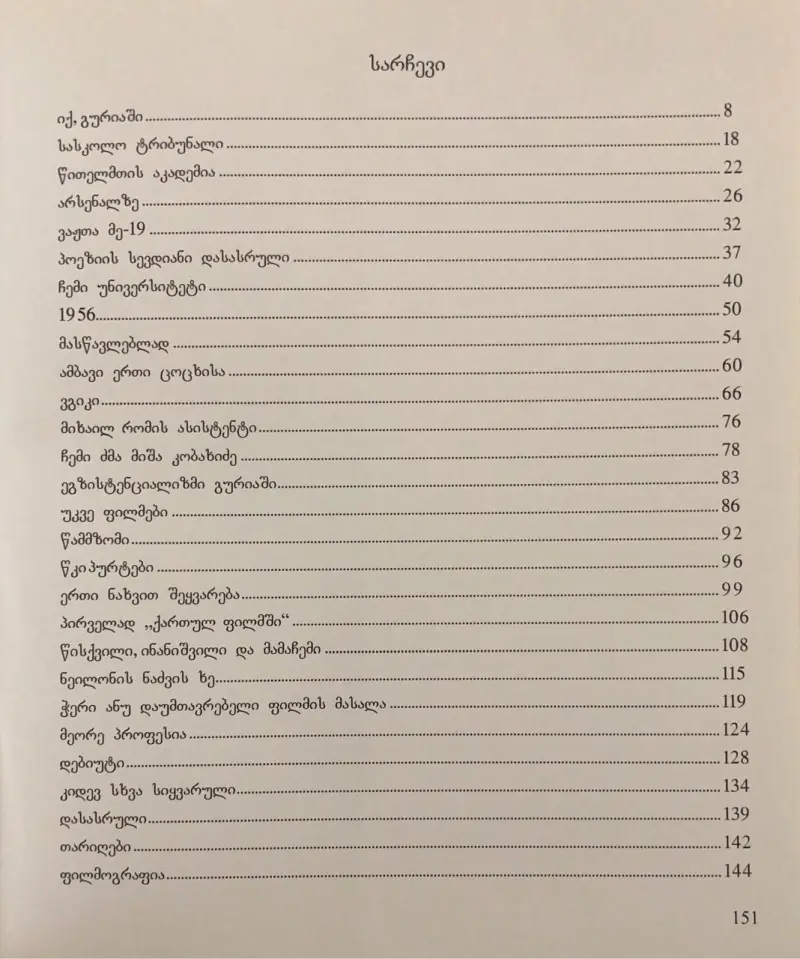 სარჩევი
იქ, გურიაში 8
სასკოლო ტრიბუნალი 18
წითელმთის აკადემია 22
არსენალზე 26
ვაჟთა მე-19 32
პოეზიის სევდიანი დასასრული 37
ჩემი უნივერსიტეტი 40
1956 50
მასწავლებლად 54
ამბავი ერთი ცოცხისა 60
ვგიკი 66
მიხაილ რომის ასისტენტი 76
ჩემი ძმა მიშა კობახიძე 78
ეგზისტენციალიზმი გურიაში 83
უკვე ფილმები 86
წამმზომი 92
წკიპურტები 96
ერთი ნახვით შეყვარება 99
პირველად „ქართულ ფილმში“ 106
წისქვილი, ინანიშვილი და მამაჩემი 108
ნეილონის ნაძვის ხე 115
ჭერი ანუ დაუმთავრებელი ფილმის მასალა 119
მეორე პროფესია 124
დებიუტი 128
კიდევ სხვა სიყვარული 134
დასასრული 139
თარიღები 142
ფილმოგრაფია 144
151